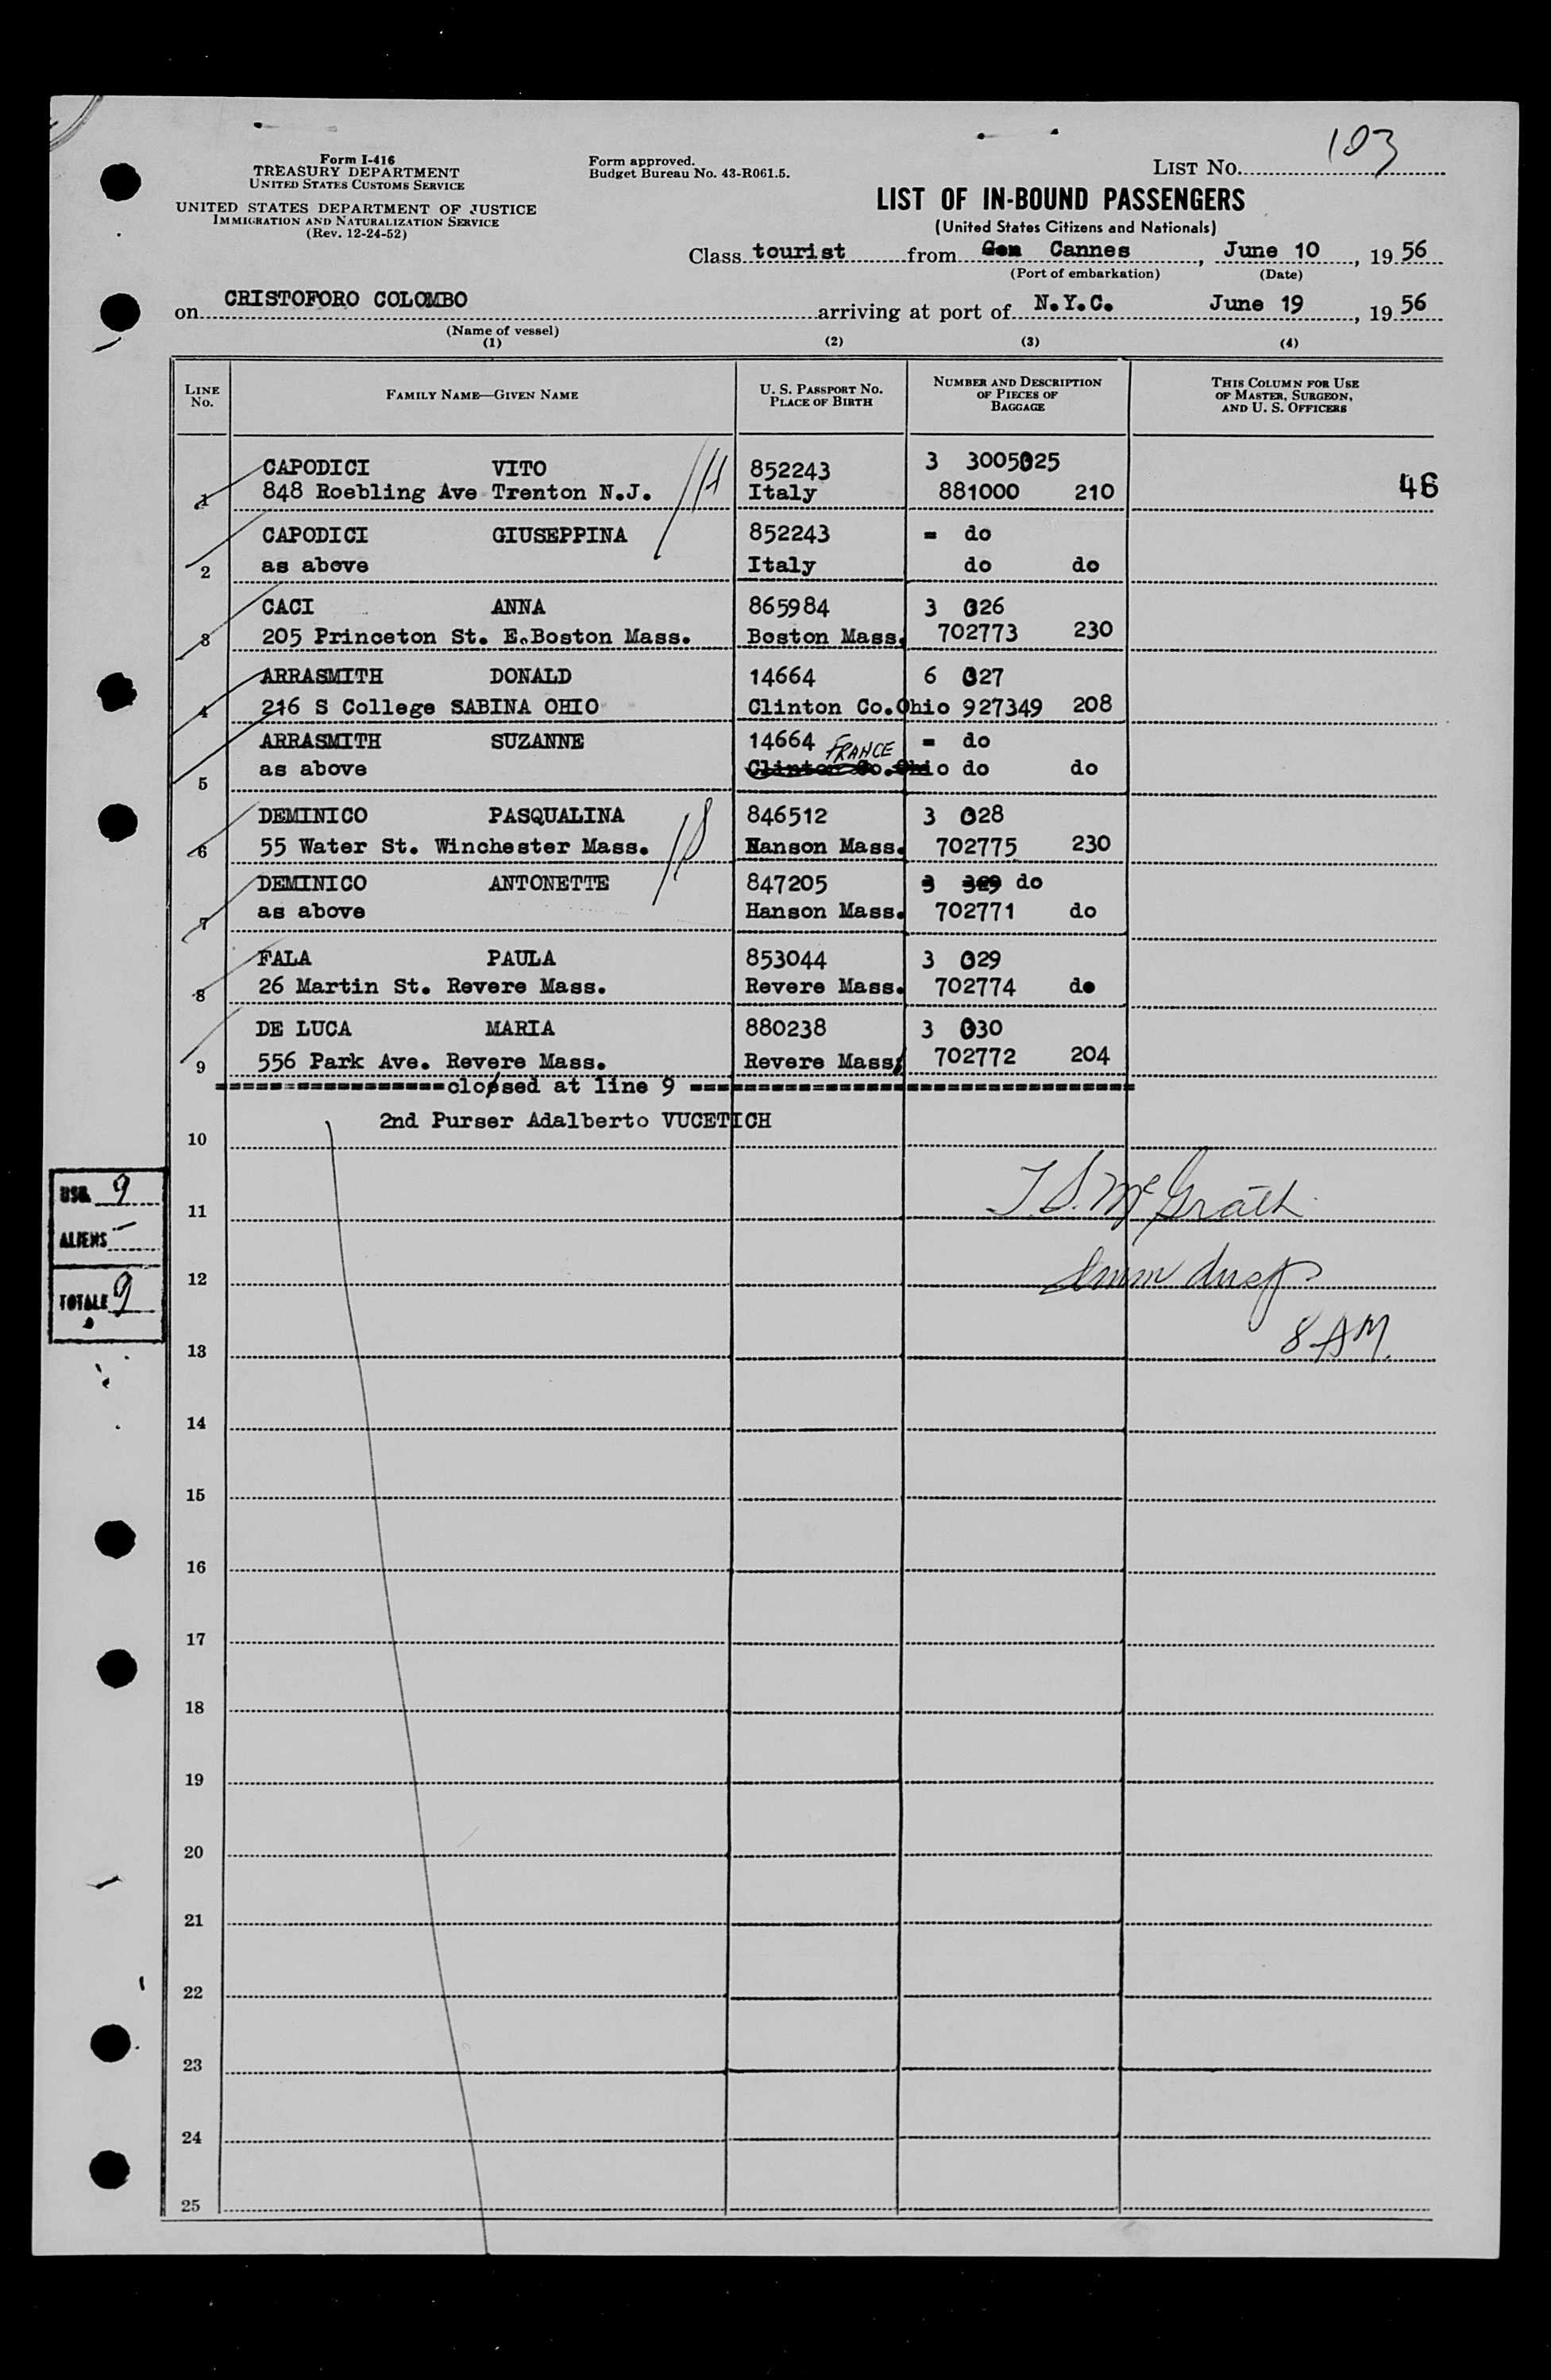 103
Form I-416
TREASURY DEPARTMENT
UNITED STATES CUSTOMS SERVICE
Form approved.
Budget Bureau No. 43-R061.5.
LIST NO.
UNITED STATES DEPARTMENT OF JUSTICE
IMMIGRATION AND NATURALIZATION SERVICE
(Rev. 12-24-52)
LIST OF IN-BOUND PASSENGERS
(United States Citizens and Nationals)
Class tourist from Gen Cannes, June 10, 1956
(Port of embarkation) (Date)
on CRISTOFORO COLOMBO arriving at port of N.Y.C. June 19, 1956
(Name of vessel)
(1) (2) (3) (4)
LINE NO. FAMILY NAME—GIVEN NAME U. S. PASSPORT NO. PLACE OF BIRTH NUMBER AND DESCRIPTION OF PIECES OF BAGGAGE THIS COLUMN FOR USE OF MASTER, SURGEON, AND U. S. OFFICERS
CAPODICI VITO 852243 3 3005025
1 848 Roebling Ave Trenton N.J. Italy 881000 210 46
CAPODICI GIUSEPPINA 852243 = do
2 as above Italy do do
CACI ANNA 865984 3 026
3 205 Princeton St. E.Boston Mass. Boston Mass. 702773 230
ARRASMITH DONALD 14664 6 027
4 216 S College SABINA OHIO Clinton Co.Ohio 927349 208
ARRASMITH SUZANNE 14664 FRANCE = do
5 as above Clinton Co.Ohio do do
DEMINICO PASQUALINA 846512 3 028
6 55 Water St. Winchester Mass. Hanson Mass. 702775 230
DEMINICO ANTONETTE 847205 3 329 do
7 as above Hanson Mass. 702771 do
FALA PAULA 853044 3 029
8 26 Martin St. Revere Mass. Revere Mass. 702774 do
DE LUCA MARIA 880238 3 030
9 556 Park Ave. Revere Mass. Revere Mass. 702772 204
==================clossed at line 9 =================================
2nd Purser Adalberto VUCETICH
10
USA 9
11 T.S. McGrath
ALIENS –
12 Imm Insp
TOTALE 9
13 8 AM.
14
15
16
17
18
19
20
21
22
23
24
25